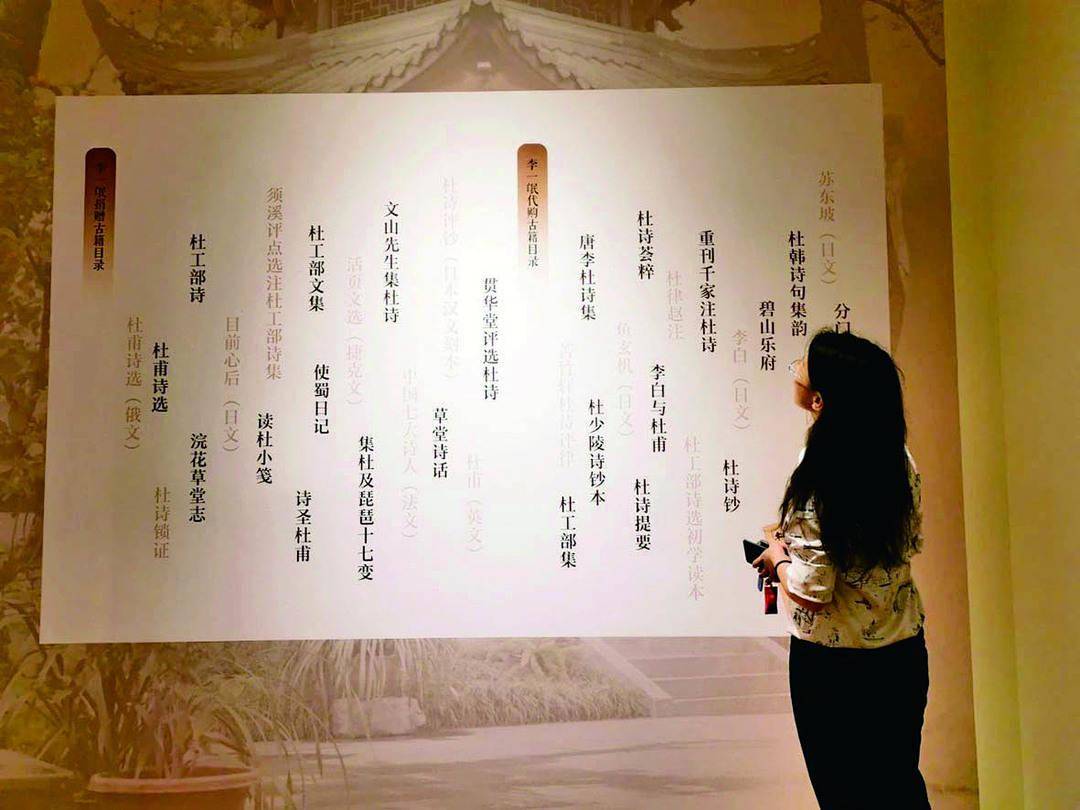 李一氓捐赠古籍目录
杜甫诗选（俄文）
杜甫诗选
杜诗锁证
杜工部诗
浣花草堂志
目前心后（日文）
读杜小笺
须溪评点选注杜工部诗集
诗圣杜甫
杜工部文集
使蜀日记
活页文选（捷克文）
集杜及琵琶十七变
文山先生集杜诗
中国七大诗人（法文）
草堂诗话
杜诗评钞（日本汉文刻本）
杜甫（英文）
贯华堂评选杜诗
李一氓代购古籍目录
杜诗评律
杜工部集
唐李杜诗集
杜少陵诗钞本
鱼玄机（日文）
杜诗荟粹
杜诗提要
李白与杜甫
杜律赵注
杜工部诗选初学读本
重刊千家注杜诗
杜诗钞
李白（日文）
碧山乐府
杜韩诗句集韵
苏东坡（日文）
分门